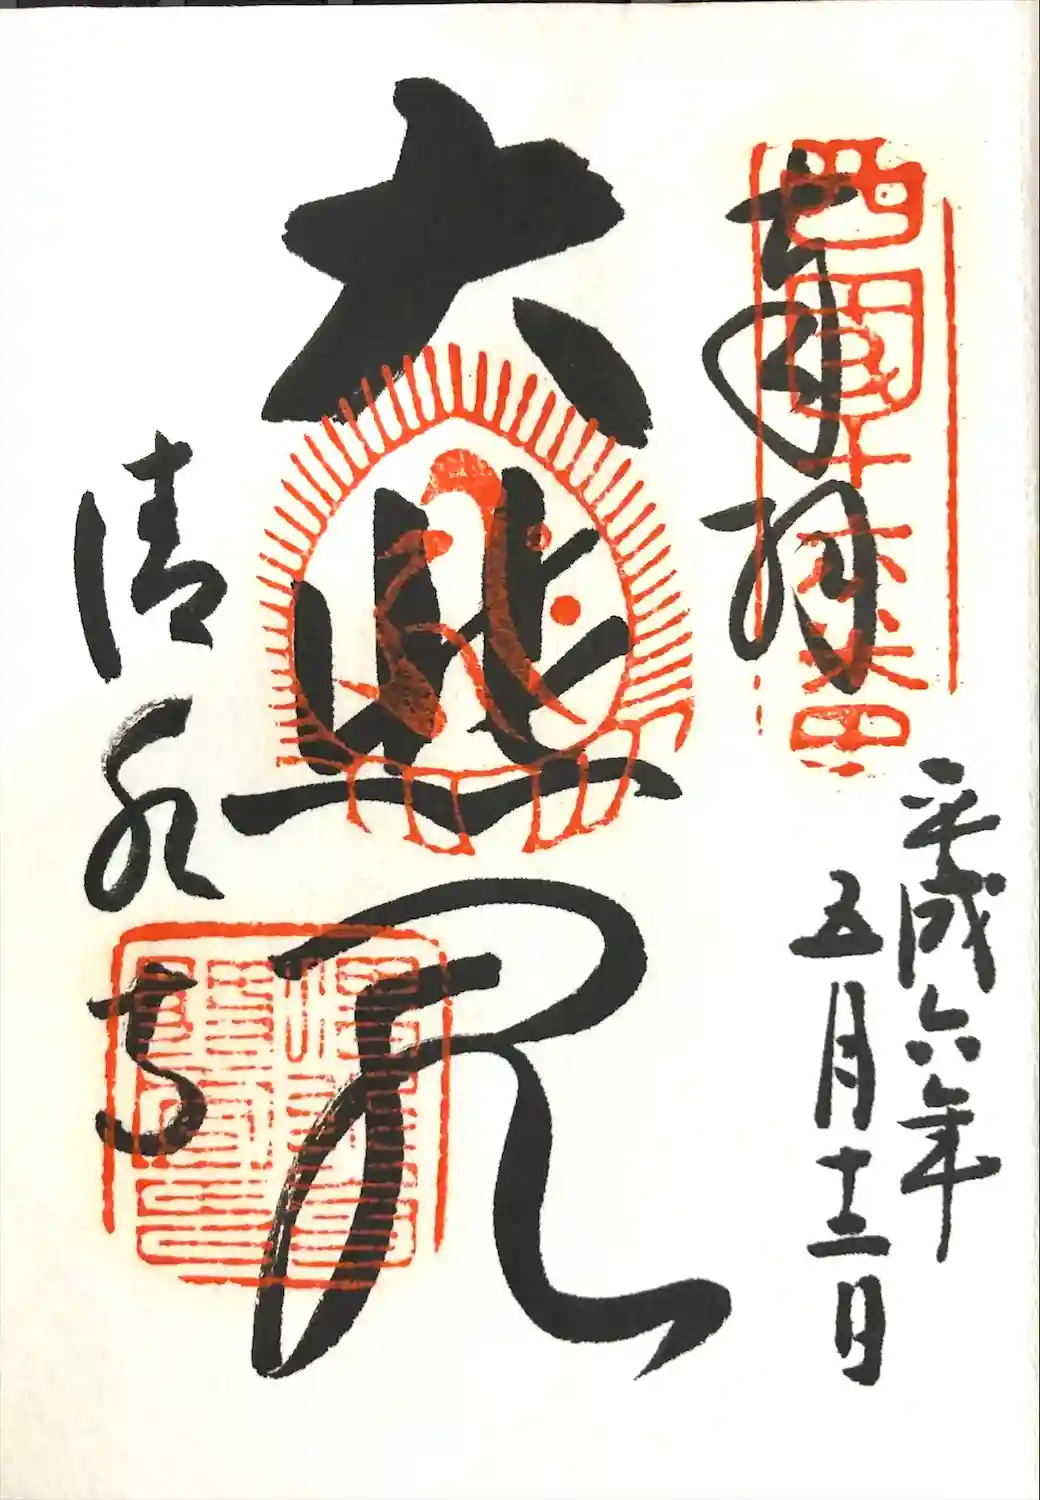 奉拝
西國十六番
平成六年
五月十二日
大悲閣
清水寺